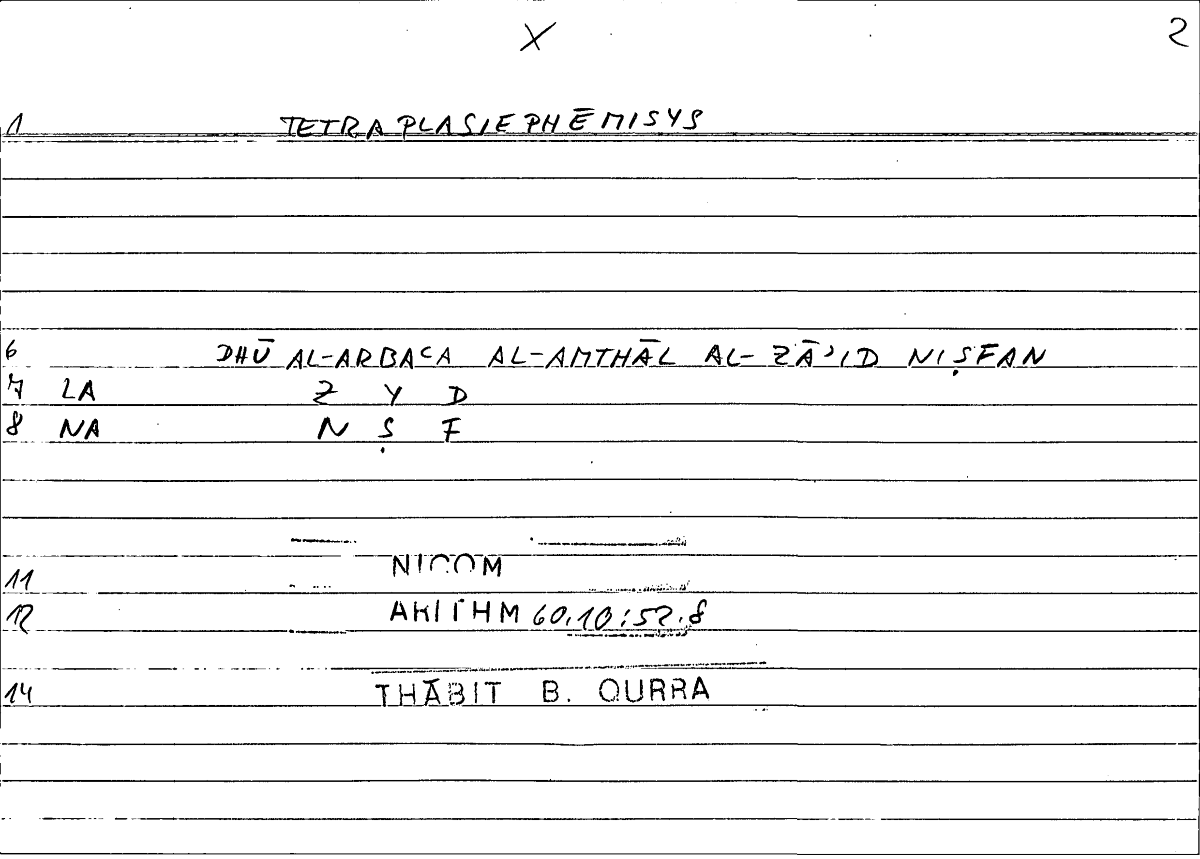 X 2
1 TETRAPLASIEPHĒMISYS
6 DHŪ AL-ARBAʿA AL-AMTHĀL AL-ZĀʾID NIṢFAN
7 LA Z Y D
8 NA N Ṣ F
11 NICOM
12 ARITHM 60,10:52.8
14 THĀBIT B. QURRA